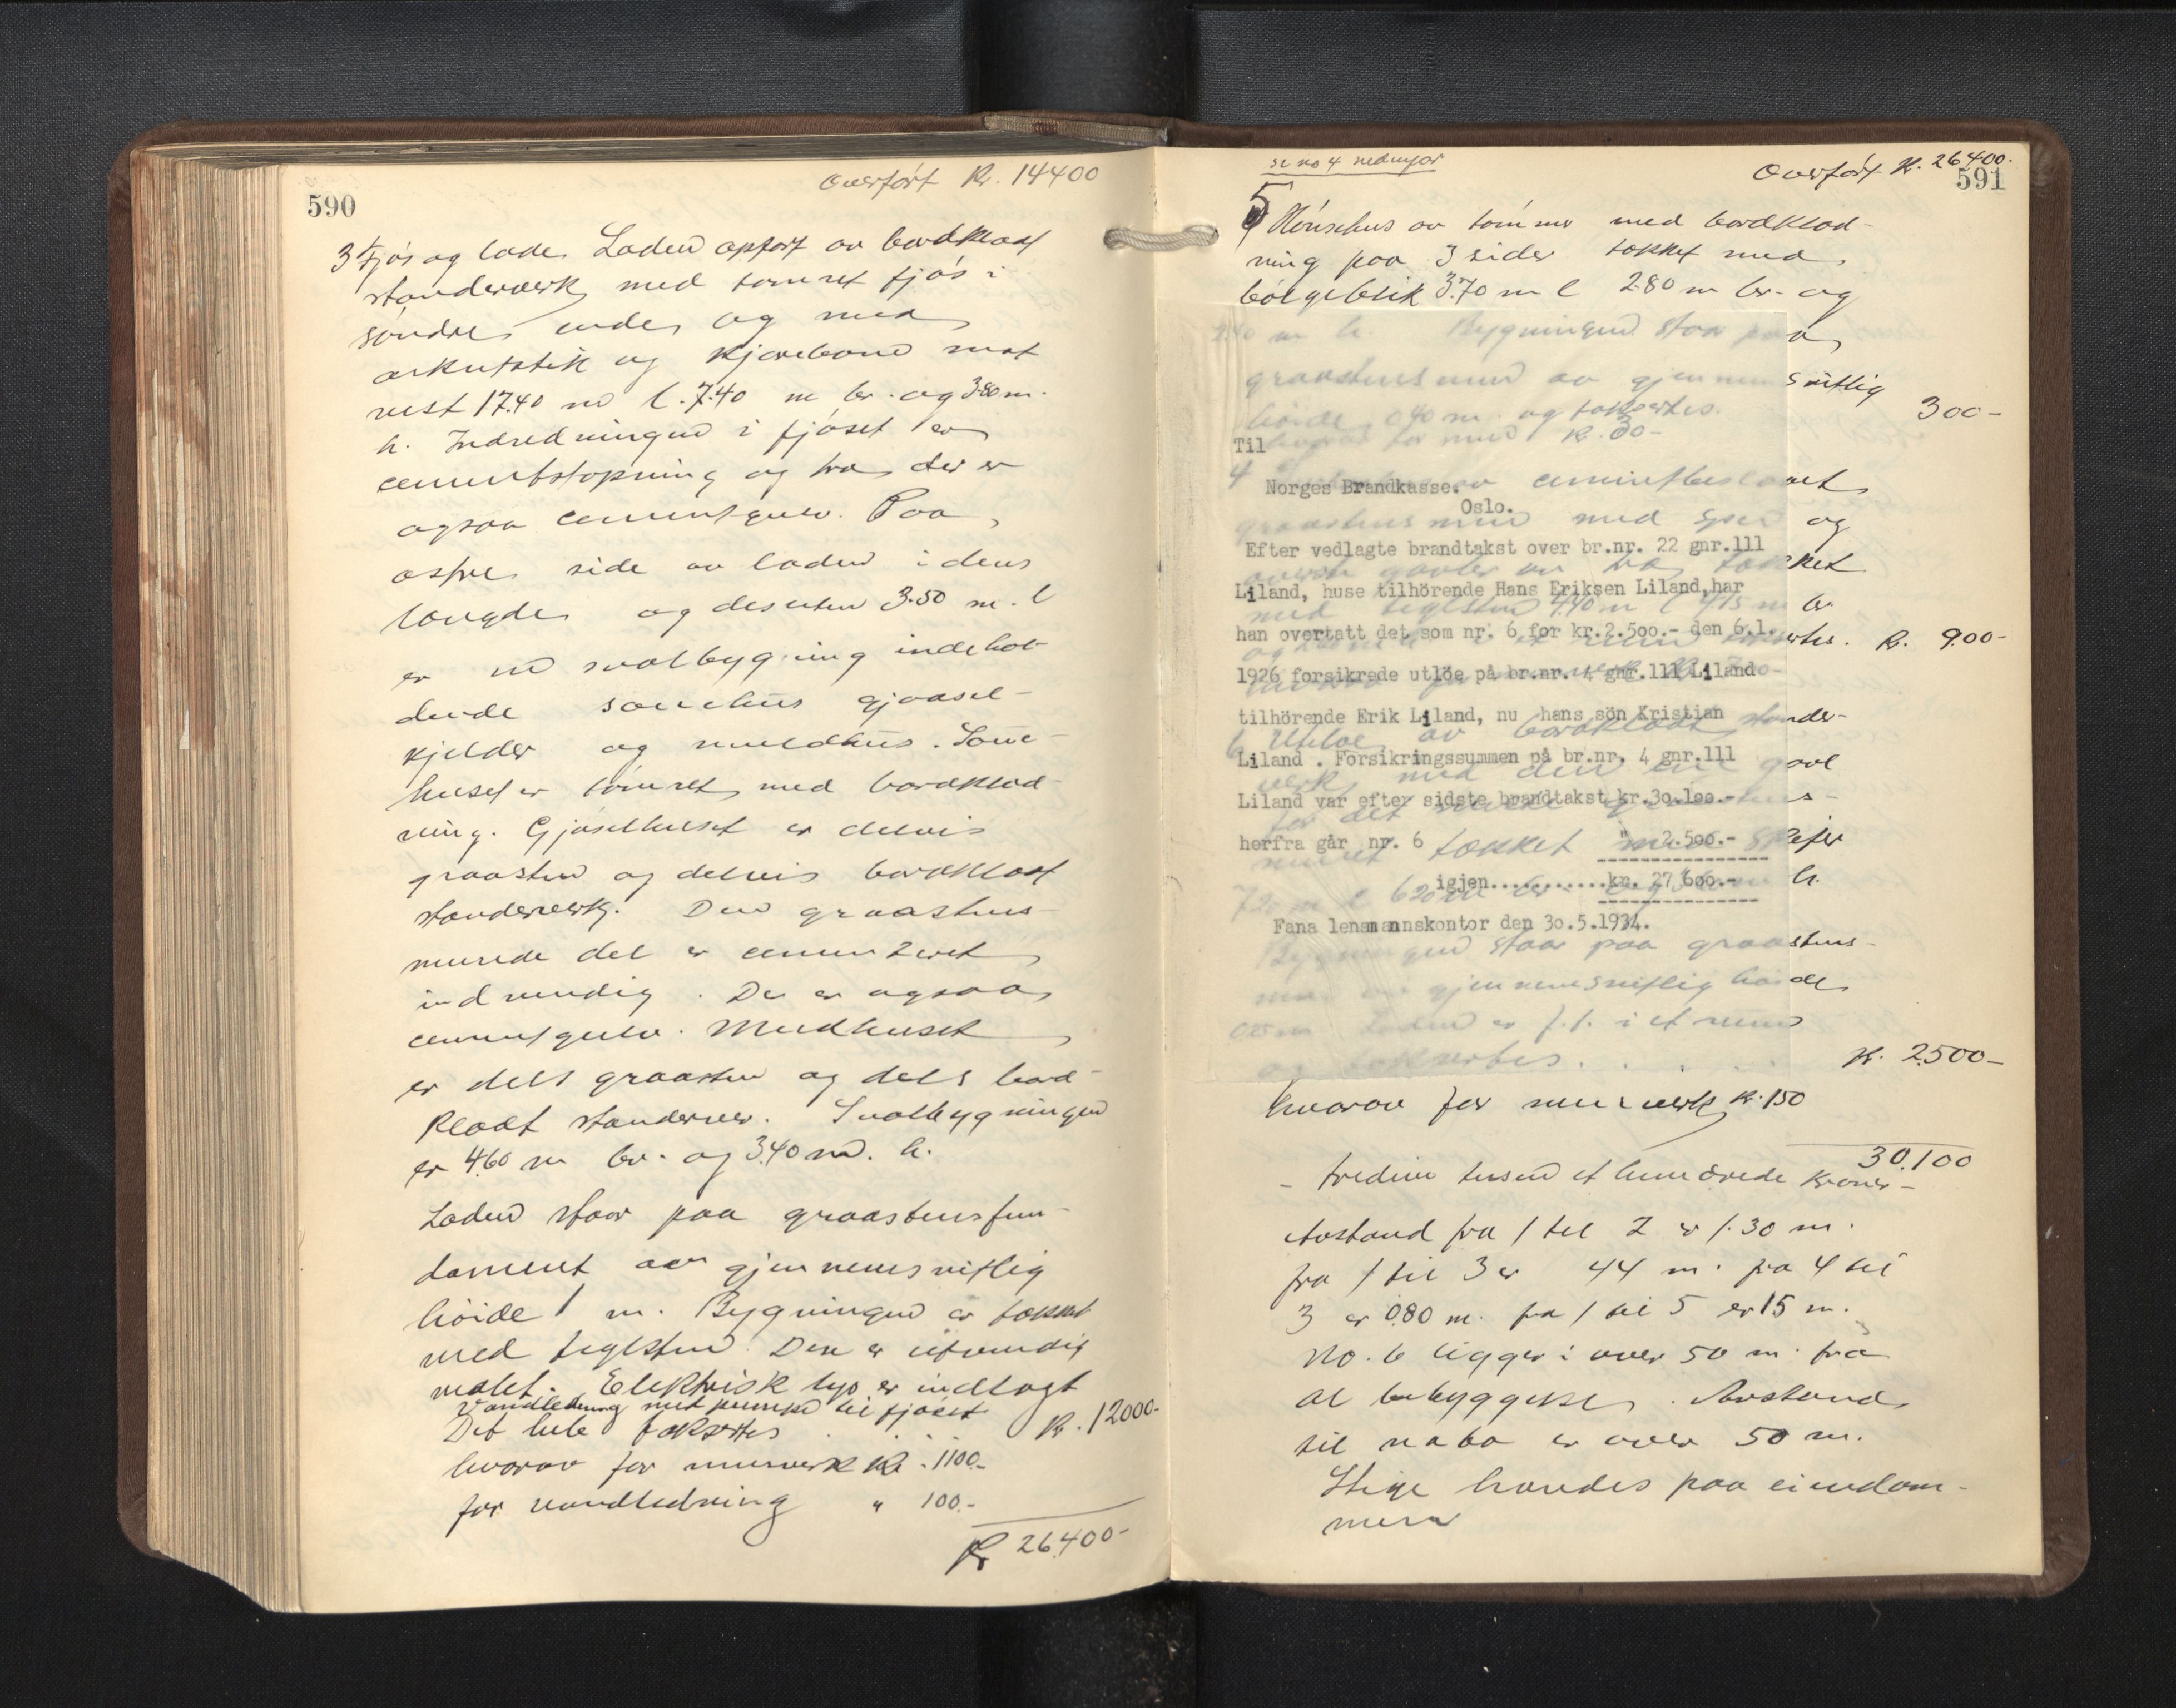 590
Overført Kr. 14400
3 Fjøs og lade. Laden opført av bordklædt
standerverk med tømret fjøs i
søndre ende og med
og kjørebane mot
vest 17.40 m l. 7.40 m br. og 3.80 m.
h. Indredningen i fjøset er
cementstøpning og træ der er
ogsaa cementgulv. Paa
østre side av laden i dens
længde og desuten 3.50 m. l
er en svalbygning indehol-
dende sauehus gjødsel-
kjelder og muldhus. Saue-
huset er tømret med bordklæd-
ning. Gjøselhuset er delvis
graasten og delvis bordklædt
standerverk. Den graastens
murede del er cementeret
indvendig. Der er ogsaa
cementgulv. Muldhuset
er dels graasten og dels bord-
klædt standerver. Svalbygningen
er 4.60 m br. og 3.40 m. h.
Laden staar paa graastensfun-
dament av gjennemsnitlig
höide 1 m. Bygningen er tækket
med teglsten. Den er utvendig
malet. Elektrisk lys er indlagt
Vandledning med pumpe til fjøset
Det hele takseres Kr. 12000-
hvorav for murverk Kr. 1100.-
for vandledning " 100.-
Kr 26400-
se no 4 nedenfor
Overført Kr. 26400.
591
5 Hönsehus av tömmer med bordklæd-
ning paa 3 sider tækket med
bølgeblik 3.70 m l 2.80 m br. og
2.40 m h. Bygningen staar paa
graastensmur av gjennemsnitlig
høide 0.40 m. og takseres. 300-
hvorav for mur Kr. 30-
Til
4 av cementbeslaaet
Norges Brandkasse.
Oslo.
graastens mur med og
Efter vedlagte brandtakst over br.nr. 22 gnr.111
øverste gavler av træ tækket
Liland, huse tilhörende Hans Eriksen Liland,har
med teglsten 4.40 m l 4.15 m br.
han overtatt det som nr. 6 for kr.2.500.- den 6.1.
og Kr. 900-
1926 forsikrede utlöe på br.nr. 4 gnr.111 Liland
tilhörende Erik Liland, nu hans sön Kristian
6 Utløe av bordklædt stander-
Liland . Forsikringssummen på br.nr. 4 gnr.111
verk med den ene gavl
Liland var efter sidste brandtakst kr.30.100.-
herfra går nr. 6 " 2.500.-
muret tækket med skifer
igjen............kr. 27 600.-
7.20 m l 6.20 m br. h.
Fana lensmannskontor den 30.5.1934.
Bygningen staar paa graastens-
mur av gjennemsnitlig høide
Laden er f.t. i et rum
og takseres. . . . . Kr. 2500-
hvorav for murverk Kr. 150
30.100
- tredive tusen et hundrede kroner -
Avstand fra 1 til 2 er 1.30 m.
fra 1 til 3 er 44 m. fra 4 til
3 er 0.80 m. fra 1 til 5 er 15 m.
No. 6 ligger i over 50 m. fra
al bebyggelse. Avstand
til nabo er over 50 m.
Stige handes paa eiendom-
men